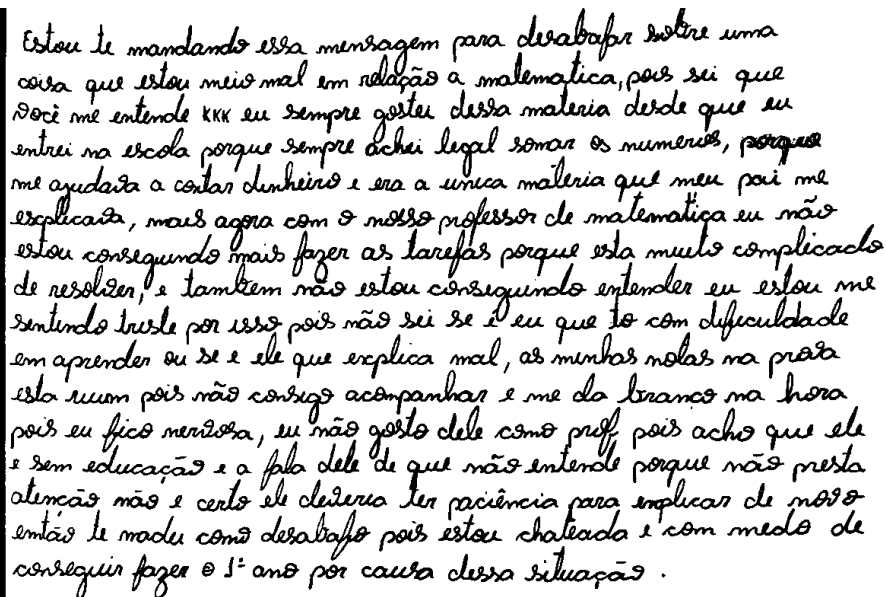 Estou te mandando essa mensagem para desabafar sobre uma
coisa que estou meio mal em relação a matematica, pois sei que
você me entende KKK eu sempre gostei dessa materia desde que eu
entrei na escola porque sempre achei legal somar os numeros, porque
me ajudava a contar dinheiro e era a unica materia que meu pai me
explicava, mais agora com o nosso professor de matematica eu não
estou conseguindo mais fazer as tarefas porque esta muito complicado
de resolver, e tambem não estou conseguindo entender eu estou me
sentindo triste por isso pois não sei se é eu que to com dificuldade
em aprender ou se e ele que explica mal, as minhas notas na prova
esta ruum pois não consigo acompanhar e me da branco na hora
pois eu fico nervosa, eu não gosto dele como prof, pois acho que ele
e sem educação e a fala dele de que não entende porque não presta
atenção não e certo ele deveria ter paciência para explicar de novo
então te madei como desabafo pois estou chateada e com medo de
conseguir fazer o 1º ano por causa dessa situação.